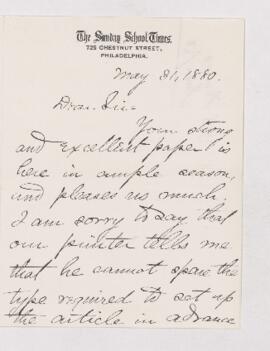 The Sunday School Times.
725 CHESTNUT STREET,
PHILADELPHIA.
May 31, 1880.
Dear Sir:-
Your strong
and excellent paper is
here in ample season,
and pleases us much.
I am sorry to say that
our printer tells me
that he cannot spare the
type required to set up
the article in advance